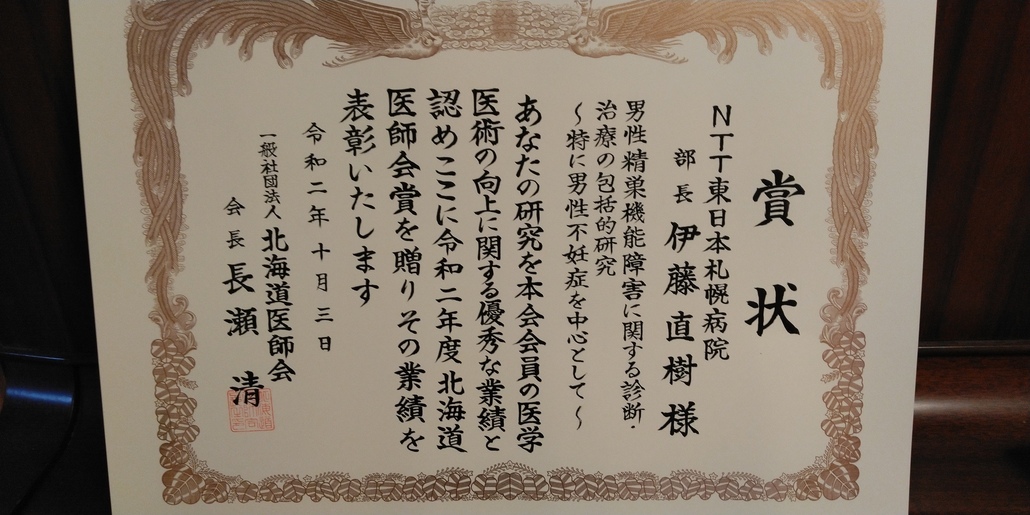 賞状
NTT東日本札幌病院
部長 伊藤直樹様
男性精巣機能障害に関する診断・
治療の包括的研究
～特に男性不妊症を中心として～
あなたの研究を本会会員の医学
医術の向上に関する優秀な業績と
認めここに令和二年度北海道
医師会賞を贈りその業績を
表彰いたします
令和二年十月三日
一般社団法人 北海道医師会
会長 長瀬清